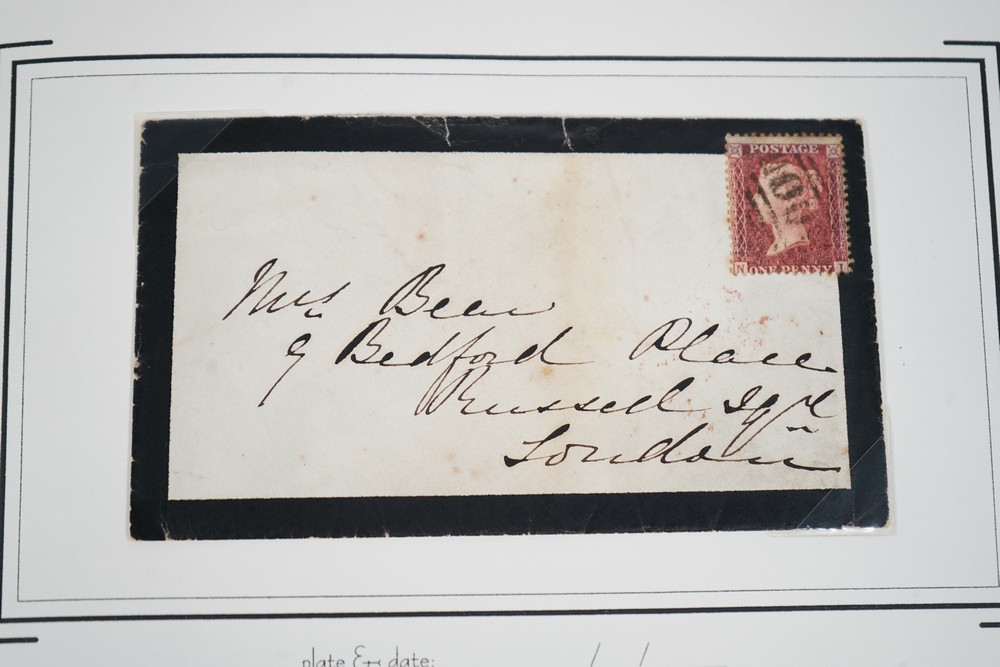 POSTAGE
N ONE PENNY I
Mrs Bean
9 Bedford Place
Russell Sqre
London
plate & date: / /